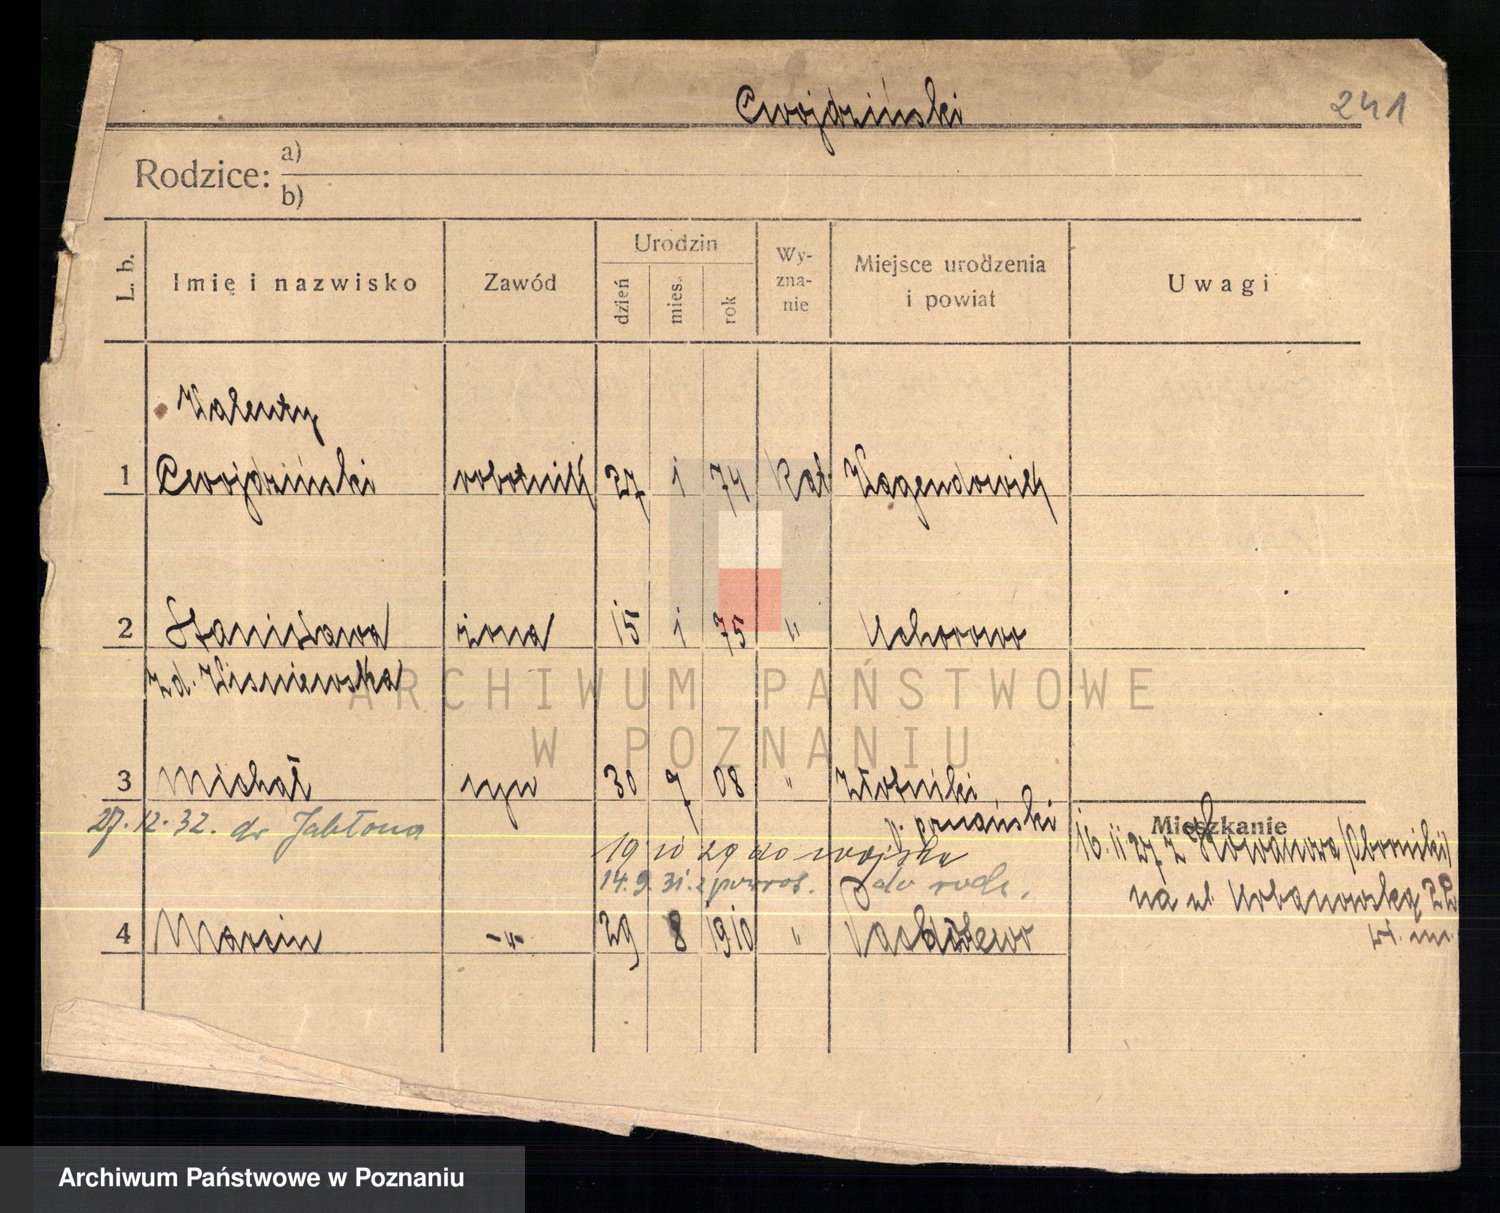 Cwojdziński
241
Rodzice: a)
b)
L. b. Imię i nazwisko Zawód Urodzin dzień mies. rok Wy-zna-nie Miejsce urodzenia i powiat Uwagi
Walenty
1 Cwojdziński robotnik 27 1 74 kat
2 Stanisława żona 15 1 75 " Uchorowo
z d. Wisniewska
3 Michał syn 30 9 08 " Złotniki
p. poznański
27. 12. 32. do Jabłona
Mieszkanie
19 10 29 do wojska
16. 11 27 z (Oborniki)
14. 9. 31. z powrot. do rodz.
na ul. Urbanowską 22
4 Marcin -"- 29 8 1910 "
ARCHIWUM PAŃSTWOWE
W POZNANIU
Archiwum Państwowe w Poznaniu